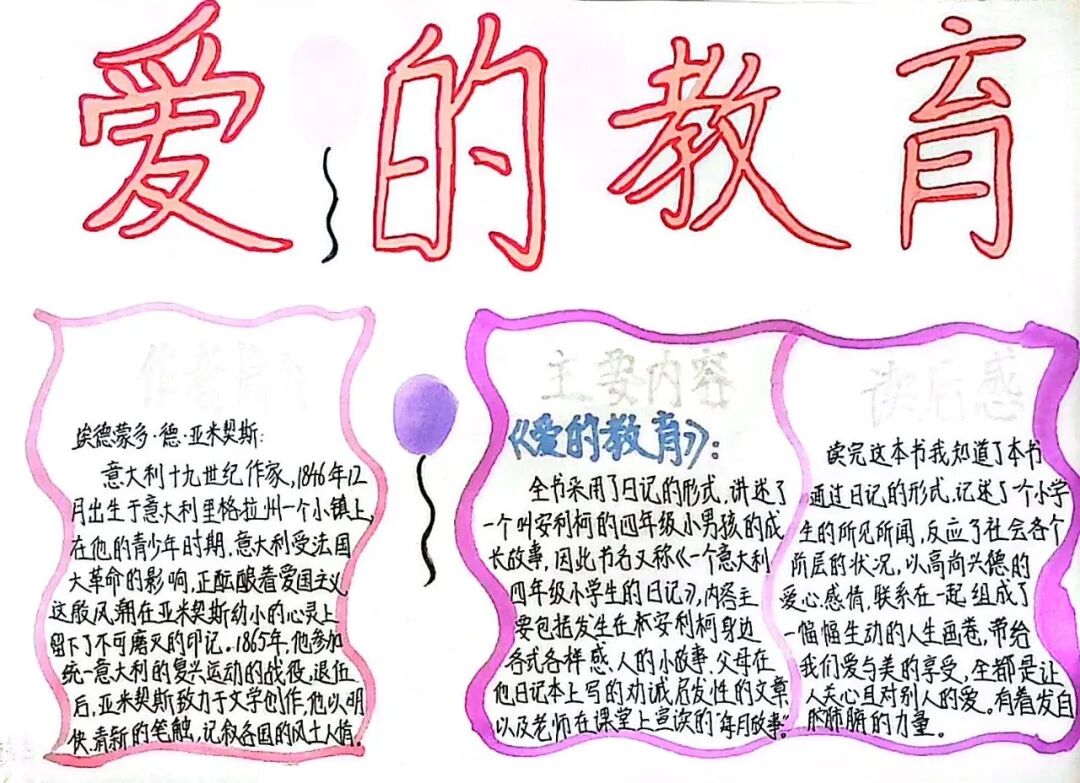 爱的教育
作者简介
埃德蒙多·德·亚米契斯:
意大利十九世纪作家,1846年12
月出生于意大利里格拉州一个小镇上,
在他的青少年时期,意大利受法国
大革命的影响,正酝酿着爱国主义
这股风潮在亚米契斯幼小的心灵上
留下了不可磨灭的印记。1865年,他参加
统一意大利的复兴运动的战役,退伍
后,亚米契斯致力于文学创作,他以明
快、清新的笔触,记叙各国的风土人情。
主要内容
《爱的教育》:
全书采用了日记的形式,讲述了
一个叫安利柯的四年级小男孩的成
长故事,因此书名又称《一个意大利
四年级小学生的日记》,内容主
要包括发生在安利柯身边
各式各样感人的小故事、父母在
他日记本上写的劝诫启发性的文章
以及老师在课堂上宣读的“每月故事”
读后感
读完这本书我知道了本书
通过日记的形式,记述了一个小学
生的所见所闻,反应了社会各个
阶层的状况,以高尚兴德的
爱心.感情,联系在一起组成了
一幅幅生动的人生画卷,带给
我们爱与美的享受,全都是让
人关心且对别人的爱。有着发自
肺腑的力量。